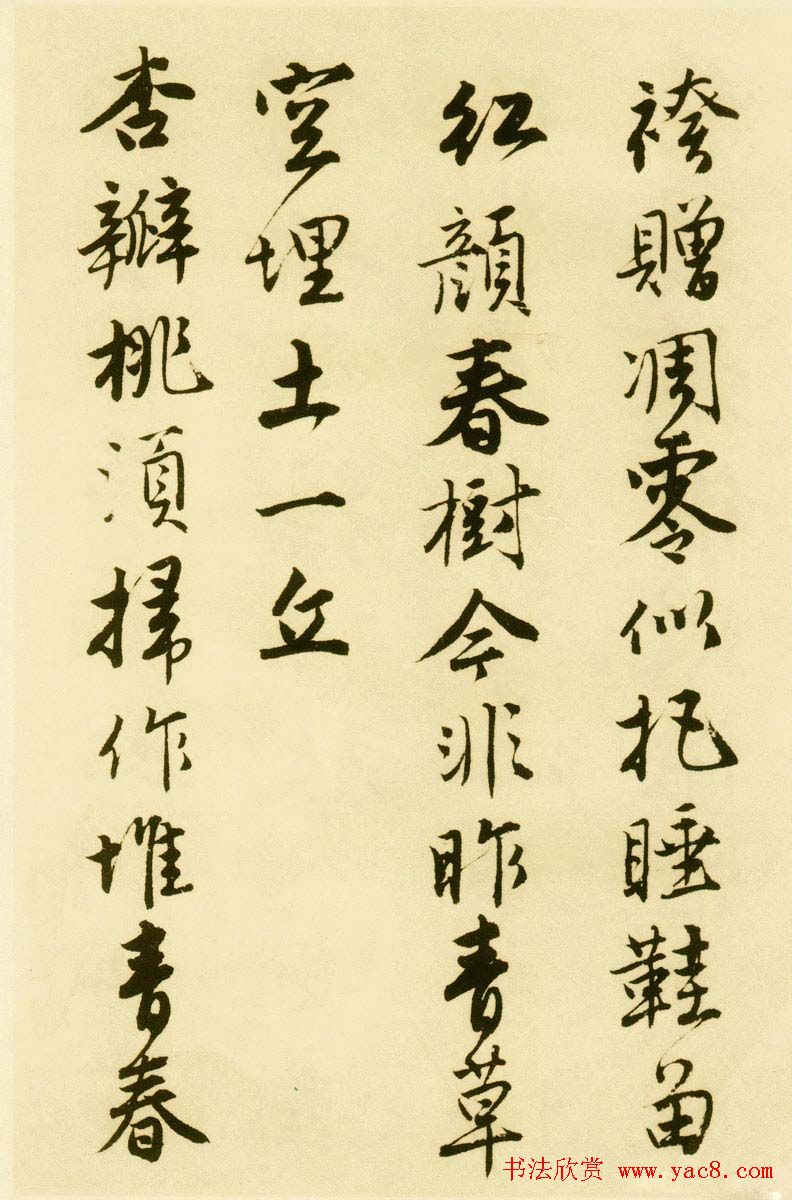 袴贈凋零似把睡鞋留
紅顏春樹今非昨青草
空埋土一丘
杏瓣桃須掃作堆青春
书法欣赏 www.yac8.com